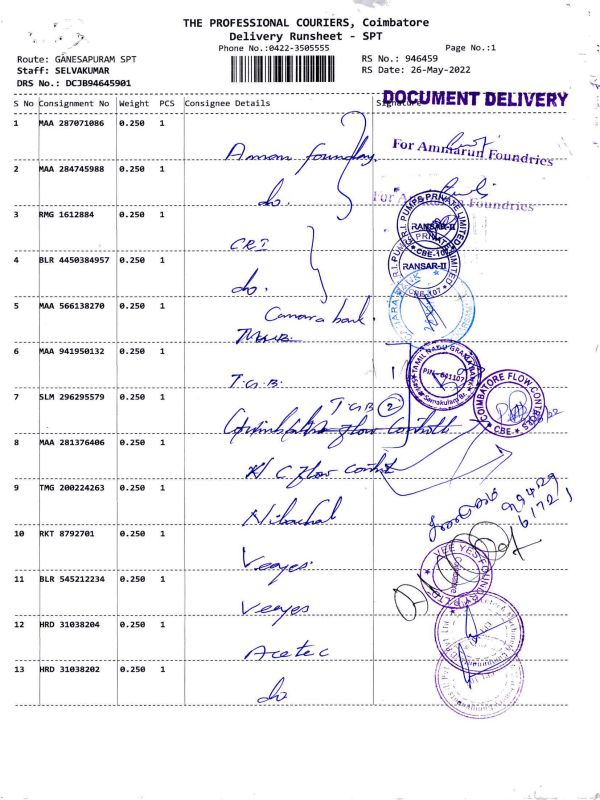 THE PROFESSIONAL COURIERS, Coimbatore
Delivery Runsheet - SPT
Phone No.:0422-3505555
Page No.:1
Route: GANESAPURAM SPT
RS No.: 946459
Staff: SELVAKUMAR
RS Date: 26-May-2022
DRS No.: DCJB94645901
DOCUMENT DELIVERY
S No Consignment No Weight PCS Consignee Details Signature
1 MAA 287071086 0.250 1
Amman foundry.
For Ammarun Foundries
2 MAA 284745988 0.250 1
do.
For Foundries
3 RMG 1612884 0.250 1
CRI
R.I. PUMPS PRIVATE LIMITED
RANSAR-II
CBE-107
4 BLR 4450384957 0.250 1
do.
R.I. PUMPS PRIVATE LIMITED
RANSAR-II
CBE-107
5 MAA 566138270 0.250 1
Canara bank
6 MAA 941950132 0.250 1
T.G.B.
TAMIL NADU GRAMA BANK
PIN - 641107
7 SLM 296295579 0.250 1
T G B 2
COIMBATORE FLOW CONTROLS
CBE
8 MAA 281376406 0.250 1
C Flow
9 TMG 200224263 0.250 1
Nibachal
10 RKT 8792701 0.250 1
Veeyes.
VEE YES FOUNDRY
11 BLR 545212234 0.250 1
Veeyes
12 HRD 31038204 0.250 1
Acetec
13 HRD 31038202 0.250 1
do